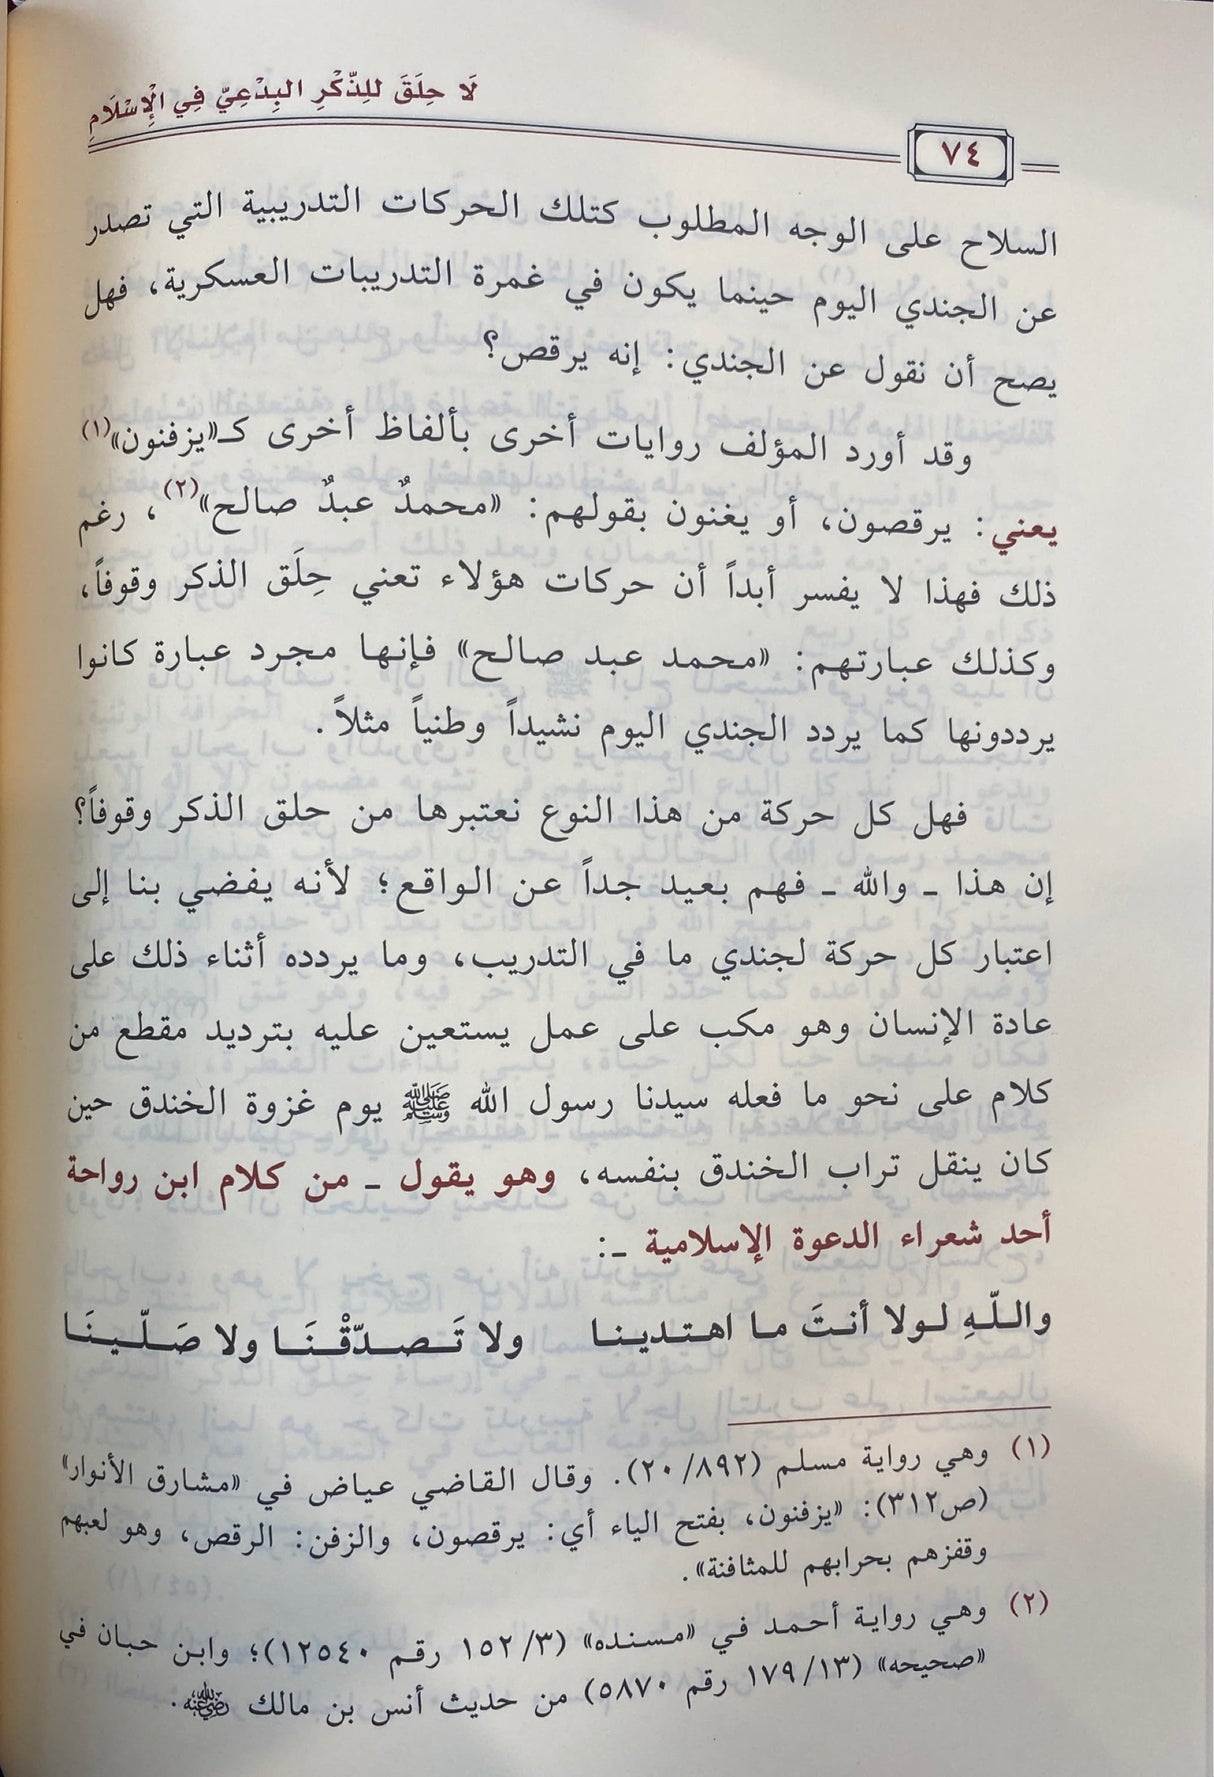 لَا حِلَقَ لِلذِّكْرِ البِدْعِيّ فِي الْإِسْلَامِ
٧٤
السلاح على الوجه المطلوب كتلك الحركات التدريبية التي تصدر
عن الجندي اليوم حينما يكون في غمرة التدريبات العسكرية، فهل
يصح أن نقول عن الجندي: إنه يرقص؟
وقد أورد المؤلف روايات أخرى بألفاظ أخرى كـ«يزفنون»(١)
يعني: يرقصون، أو يغنون بقولهم: «محمدٌ عبدٌ صالح»(٢)، رغم
ذلك فهذا لا يفسر أبداً أن حركات هؤلاء تعني حِلَق الذكر وقوفاً،
وكذلك عبارتهم: «محمد عبد صالح» فإنها مجرد عبارة كانوا
يرددونها كما يردد الجندي اليوم نشيداً وطنياً مثلاً.
فهل كل حركة من هذا النوع نعتبرها من حلق الذكر وقوفاً؟
إن هذا ـ والله ـ فهم بعيد جداً عن الواقع؛ لأنه يفضي بنا إلى
اعتبار كل حركة لجندي ما في التدريب، وما يردده أثناء ذلك على
عادة الإنسان وهو مكب على عمل يستعين عليه بترديد مقطع من
كلام على نحو ما فعله سيدنا رسول الله ﷺ يوم غزوة الخندق حين
كان ينقل تراب الخندق بنفسه، وهو يقول ـ من كلام ابن رواحة
أحد شعراء الدعوة الإسلامية ـ:
واللّهِ لولا أنتَ ما اهتدينا ولا تَصدّقْنَا ولا صَلّينَا
(١) وهي رواية مسلم (٢٠/٨٩٢). وقال القاضي عياض في «مشارق الأنوار»
(ص٣١٢): «يزفنون، بفتح الياء أي: يرقصون، والزفن: الرقص، وهو لعبهم
وقفزهم بحرابهم للمثافنة».
(٢) وهي رواية أحمد في «مسنده» (٣/ ١٥٢ رقم ١٢٥٤٠)؛ وابن حبان في
«صحيحه» (١٣/ ١٧٩ رقم ٥٨٧٠) من حديث أنس بن مالك رضي الله عنه.